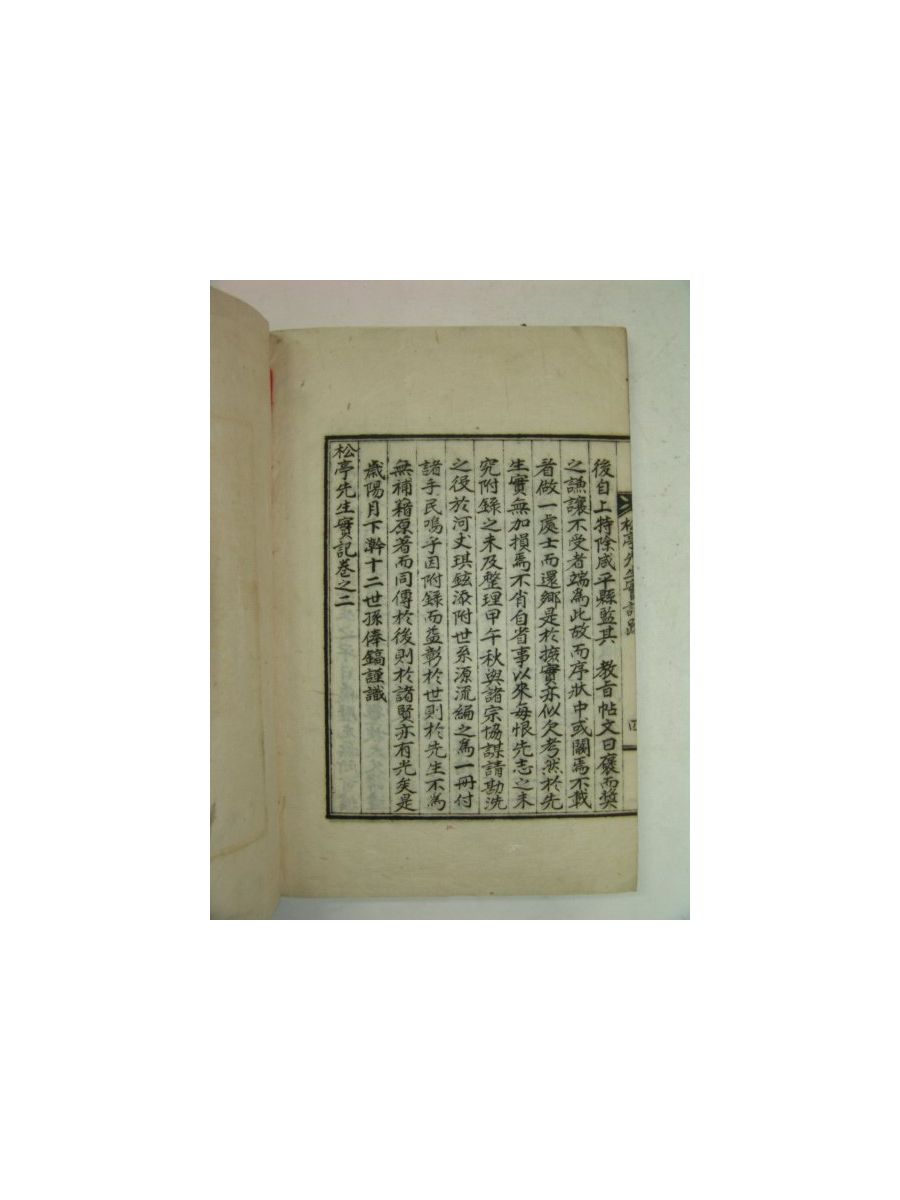 松亭先生實記跋
四
後自上特除咸平縣監其　教旨帖文曰褒而奬
之謙讓不受者端為此故而序狀中或闕焉不載
者做一處士而還鄉是於摭實亦似欠考然於先
生實無加損焉不肖自省事以來每恨先志之未
究附錄之未及整理甲午秋與諸宗協謀請勘洗
之役於河丈琪鉉添附世系源流編之為一冊付
諸手民嗚乎因附錄而益彰於世則於先生不為
無補籍原著而同傳於後則於諸賢亦有光矣是
歲陽月下澣十二世孫俸鎬謹識
松亭先生實記卷之二